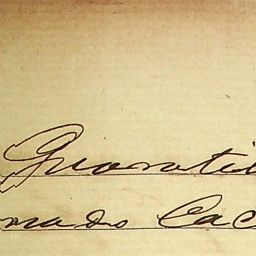 Guaratil
mado Cac